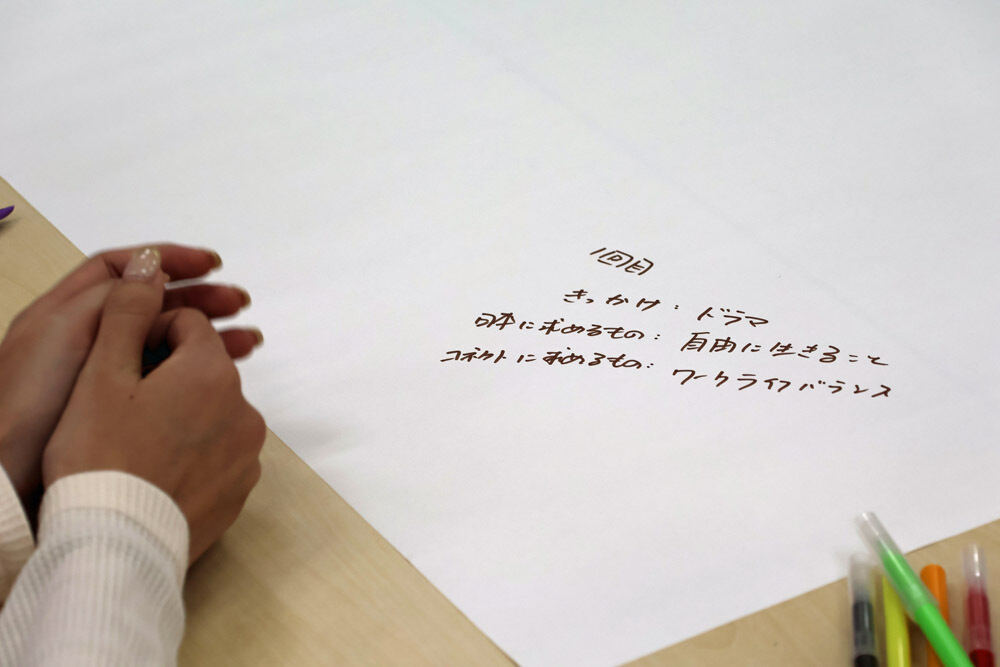 1回目
きっかけ：ドラマ
日本に求めるもの：自由に生きること
コネクトに求めるもの：ワークライフバランス